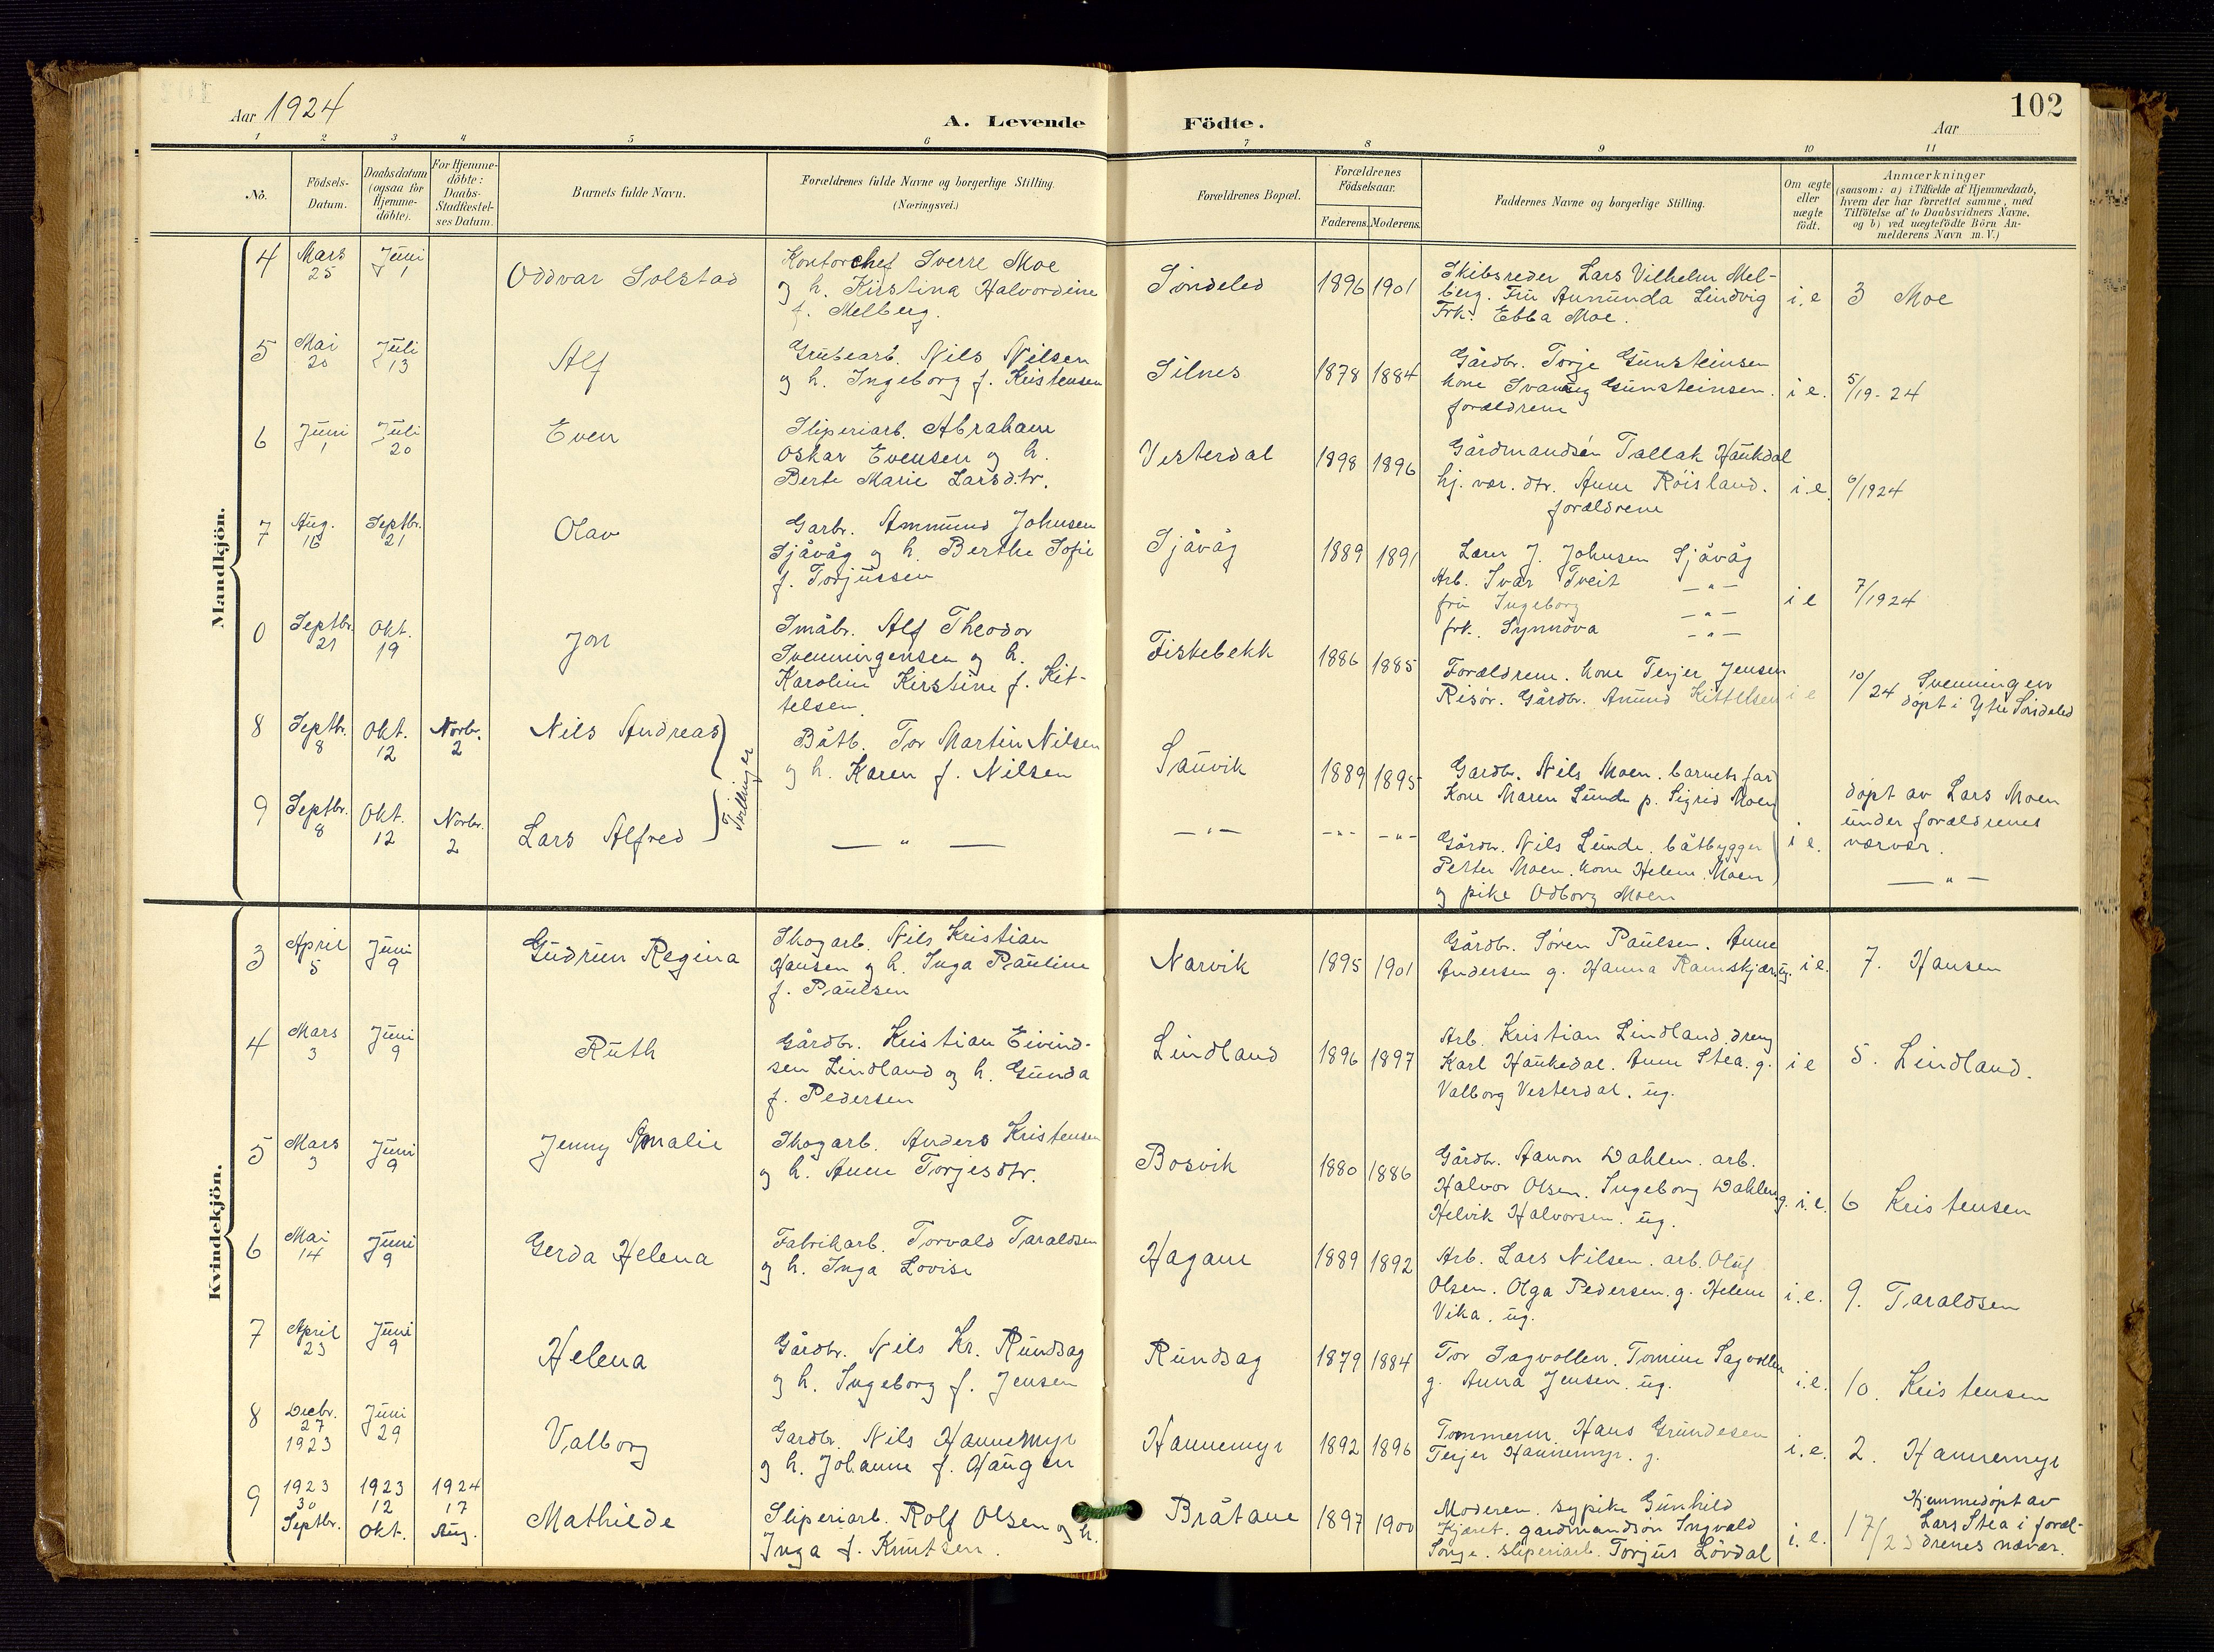 102
Aar 1924
A. Levende Födte.
Aar
1 2 3 4 5 6 7 8 9 10 11
No.
Födsels-
Datum.
Daabsdatum
(ogsaa for
Hjemme-
döbte).
For Hjemme-
döbte:
Daabs-
Stadfæstel-
ses Datum.
Barnets fulde Navn.
Forældrenes fulde Navne og borgerlige Stilling.
(Næringsvei.)
Forældrenes Bopæl.
Forældrenes
Födselsaar.
Faderens. Moderens.
Faddernes Navne og borgerlige Stilling.
Om ægte
eller
uægte
födt.
Anmærkninger
(saasom: a) i Tilfælde af Hjemmedaab,
hvem der har forrettet samme, med
Tilföielse af to Daabsvidners Navne,
og b) ved uægtefödte Börn An-
melderens Navn m. V.)
Mandkjön.
4
Mars
25
Juni
1
Oddvar Solstad
Kontorchef Sverre Moe
og h. Kirstina Halvordine
f. Melberg.
Söndeled
1896 1901
Skibsreder Lars Vilhelm Mel-
berg. Fru Anmunda Lindvig
Frk. Ebba Moe.
i.e
3 Moe
5
Mai
20
Juli
13
Alf
Grubearb. Nils Nilsen
og h. Ingeborg f. Kristensen
Silnes
1878 1884
Gårdbr. Torje Gunsteinsen
kone Svanaug Gunsteinsen.
forældrene
i e.
5/19-24
6
Juni
1
Juli
20
Even
Sliperiarb. Abraham
Oskar Evensen og h.
Berte Marie Larsdtr.
Vesterdal
1898 1896
Gårdmandsön Tallak Haukdal
hj. vær. dtr. Anne Röisland.
forældrene
i.e.
6/1924
7
Aug.
16
Septbr.
21
Olav
Garbr. Ammund Johnsen
Sjåvåg og h. Berthe Sofie
f. Torjussen
Sjåvåg
1889 1891
Lærer J. Johnsen Sjåvåg
Arb. Ivar Tveit —"—
fru Ingeborg —"—
frk. Synnöva —"—
i e
7/1924
0
Septbr.
21
Okt.
19
Jon
Småbr. Alf Theodor
Svenningensen og h.
Karoline Kirstine f. Kit-
telsen.
Fiskebekk
1886 1885
Forældrene. kone Terjer Jensen
Risör. Gårdbr. Anund Kittelsen
i e
10/24 Svenningen
döpt i Ytre Söndeled
8
Septbr.
8
Okt.
12
Novbr.
2
Nils Andreas
Tvillinger
Båtb. Tor Martin Nilsen
og h. Karen f. Nilsen
Sauvik
1889 1895
Gardbr. Nils Moen. barnets far
Kone Maren Lunde p. Sigrid Moen
döpt av Lars Moen
under forældrenes
nærvær.
9
Septbr.
8
Okt.
12
Novbr.
2
Lars Alfred
— " —
—"—
—"— —"—
Gårdbr. Nils Lunde. båtbygger
Petter Moen. kone Helene Moen
og pike Odborg Moen
i e.
— " —
Kvindekjön.
3
April
5
Juni
9
Gudrun Regina
Skogarb. Nils Kristian
Hansen og h. Inga Pauline
f. Paulsen
Narvik
1895 1901
Gårdbr. Sören Paulsen. Anne
Andersen g. Hanna Ramskjær ug.
i e.
7. Hansen
4
Mars
3
Juni
9
Ruth
Gårdbr. Kristian Eivind-
sen Lindland og h. Gunda
f. Pedersen
Lindland
1896 1897
Arb. Kristian Lindland. dreng
Karl Haukedal. Anne Stea. g.
Valborg Vesterdal. ug.
i e
5. Lindland.
5
Mars
3
Juni
9
Jenny Amalie
Skogarb. Anders Kristensen
og h. Anne Torjesdtr.
Bosvik
1880 1886
Gårdbr. Aanon Dahlen. arb.
Halvor Olsen. Ingeborg Dahlen g.
Helvik Halvorsen. ug.
i.e.
6 Kristensen
6
Mai
14
Juni
9
Gerda Helena
Fabrikarb. Torvald Taraldsen
og h. Inga Lovise
Hagane
1889 1892
Arb. Lars Nilsen. arb. Oluf
Olsen. Olga Pedersen. g. Helene
Vika. ug.
i.e.
9. Taraldsen
7
April
23
Juni
9
Helena
Gårdbr. Nils Kr. Rundsag
og h. Ingeborg f. Jensen
Rundsag
1879 1884
Tor Sagvollen. Tomine Sagvollen
g. Anna Jensen. ug.
i.e.
10. Kristensen
8
Decbr.
27
1923
Juni
29
Valborg
Gardbr. Nils Hannemyr
og h. Johanne f. Haugen
Hannemyr
1892 1896
Tommerm. Hans Grundesen
Terjer Hannemyr. g.
i.e.
2. Hannemyr
9
1923
30
Septbr.
1923
12
Okt.
1924
17
Aug.
Mathilde
Sliperiarb. Rolf Olsen og h.
Inga f. Knutsen.
Bråtane
1897 1900
Moderen. sypike Gunhild
Kjæret. gardmandsön Ingvald
Songe. sliperiarb. Torjus Lövdal
i. e.
17/23
Hjemmedöpt av
Lars Stea i foræl-
drenes nærvær.